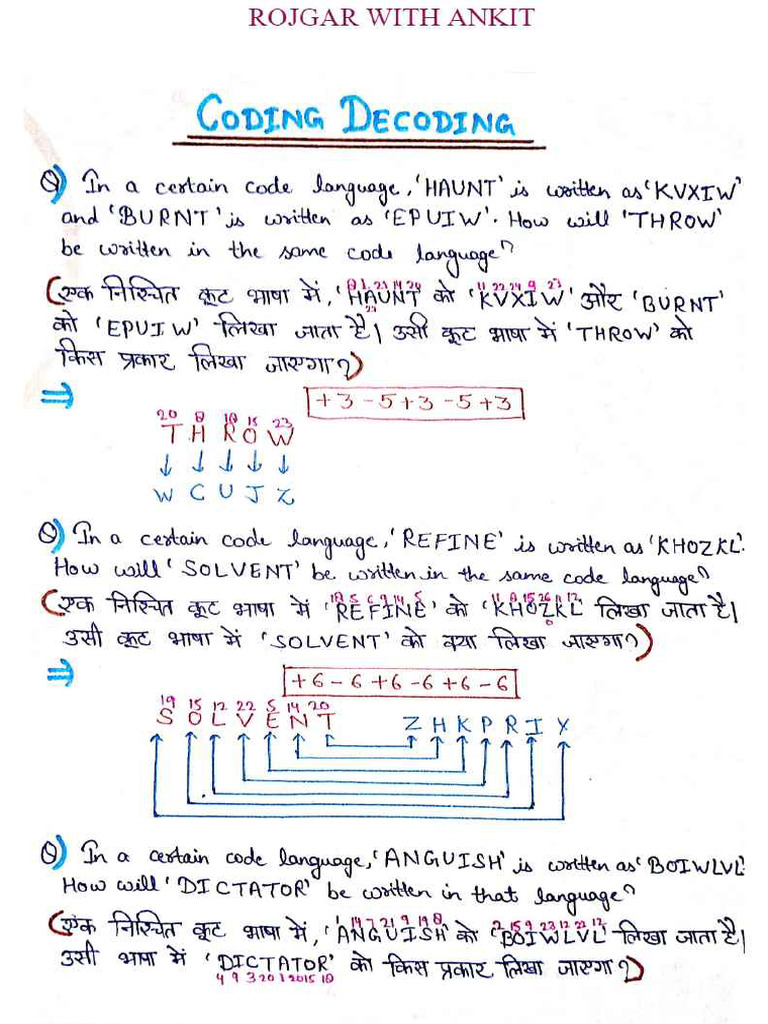 ROJGAR WITH ANKIT
CODING DECODING
Q) In a certain code language, 'HAUNT' is written as 'KVXIW'
and 'BURNT' is written as 'EPUIW'. How will 'THROW'
be written in the same code language?
8 1 21 14 20 11 22 24 9 23
(एक निश्चित कूट भाषा में, 'HAUNT' को 'KVXIW' और 'BURNT'
को 'EPUIW' लिखा जाता है। उसी कूट भाषा में 'THROW' को
किस प्रकार लिखा जाएगा?)
⇒ +3 -5 +3 -5 +3
20 8 18 15 23
T H R O W
↓ ↓ ↓ ↓ ↓
W C U J Z
Q) In a certain code language, 'REFINE' is written as 'KHOZKL'.
How will 'SOLVENT' be written in the same code language?
18 5 6 9 14 5 11 8 15 26 11 12
(एक निश्चित कूट भाषा में 'REFINE' को 'KHOZKL' लिखा जाता है।
उसी कूट भाषा में 'SOLVENT' को क्या लिखा जाएगा?)
⇒ +6 -6 +6 -6 +6 -6
19 15 12 22 5 14 20
S O L V E N T Z H K P R I Y
Q) In a certain code language, 'ANGUISH' is written as 'BOIWLVL'.
How will 'DICTATOR' be written in that language?
1 14 7 21 9 19 8 2 15 9 23 12 22 12
(एक निश्चित कूट भाषा में, 'ANGUISH' को 'BOIWLVL' लिखा जाता है।
उसी भाषा में 'DICTATOR' को किस प्रकार लिखा जाएगा?)
4 9 3 20 1 20 15 18